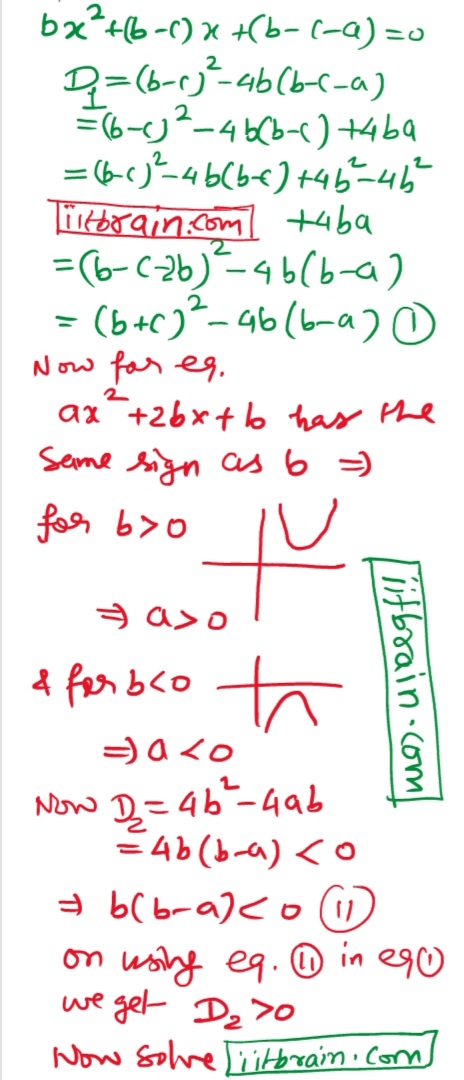 bx²+(b-c)x+(b-c-a)=0
D₁=(b-c)²-4b(b-c-a)
=(b-c)²-4b(b-c)+4ba
=(b-c)²-4b(b-c)+4b²-4b²
iitbrain.com +4ba
=(b-c-2b)²-4b(b-a)
=(b+c)²-4b(b-a) ①
Now for eq.
ax²+2bx+b has the
same sign as b ⇒
for b>0
⇒ a>0
& for b<0
⇒ a<0
Now D₂=4b²-4ab
=4b(b-a)<0
⇒ b(b-a)<0 ⑪
on using eq. ⑪ in eq①
we get D₂>0
Now solve iitbrain.com
iitbrain.com